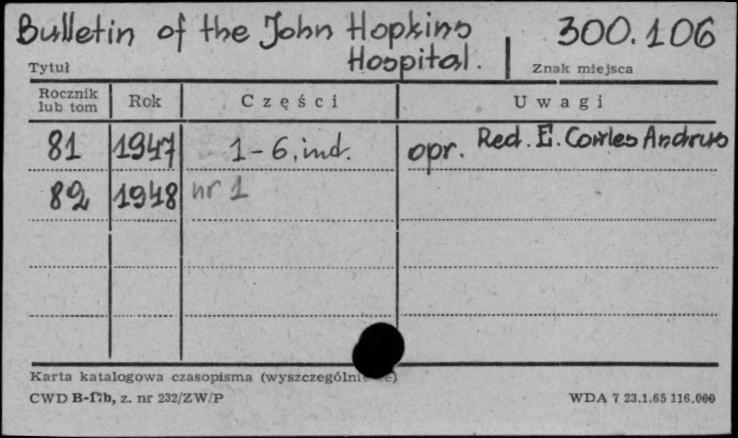 Bulletin of the John Hopkins
Hospital.
300.106
Tytuł
Znak miejsca
Rocznik lub tom Rok Części Uwagi
81 1947 1-6, ind. opr. Red. E. Cowles Andrus
82 1948 nr 1
Karta katalogowa czasopisma
CWD z. nr 232/ZW/P WDA 7 23.1.65 116.000